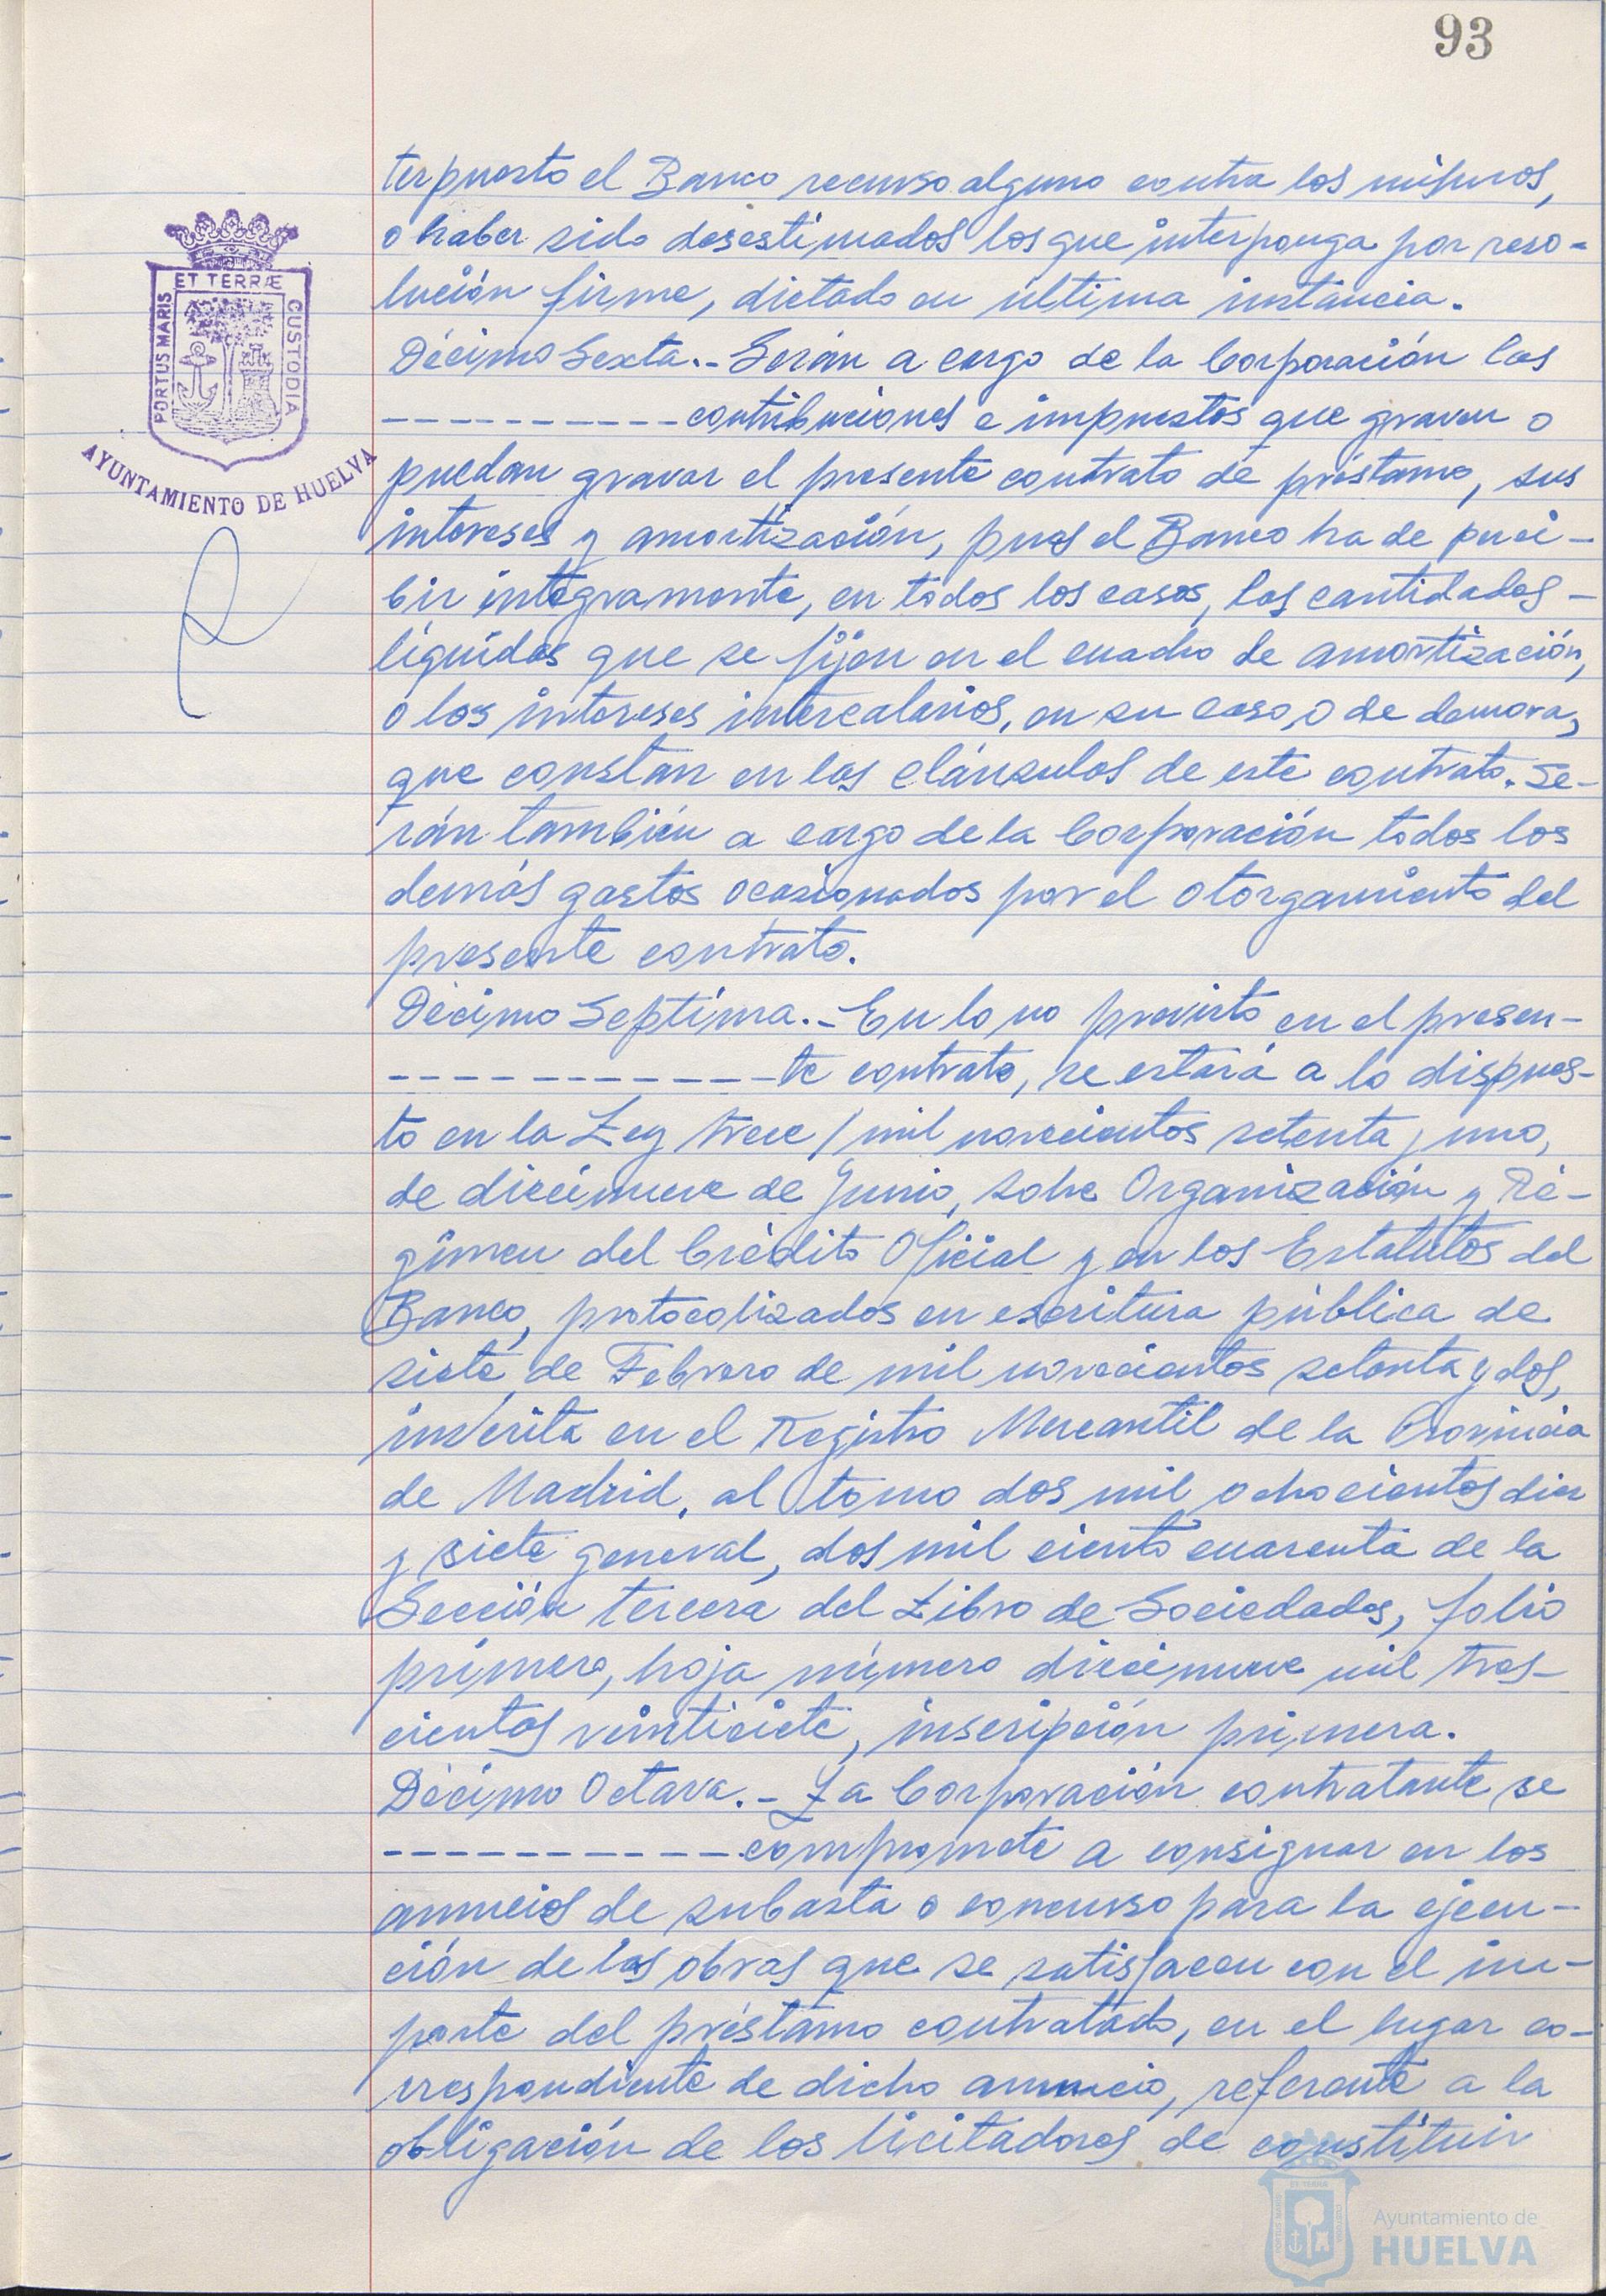 93
terpuesto el Banco recurso alguno contra los mismos,
o haber sido desestimados los que interponga por reso-
lución firme, dictado en última instancia.
Décimo Sexta.- Serán a cargo de la Corporación las
---------- contribuciones e impuestos que graven o
puedan gravar el presente contrato de préstamo, sus
intereses y amortización, pues el Banco ha de perci-
bir íntegramente, en todos los casos, las cantidades -
líquidas que se fijen en el cuadro de amortización,
o los intereses intercalarios, en su caso, o de demora,
que constan en las cláusulas de este contrato. Se-
rán también a cargo de la Corporación todos los
demás gastos ocasionados por el otorgamiento del
presente contrato.
Décimo Septima.- En lo no previsto en el presen-
------------ te contrato, se estará a lo dispues-
to en la Ley trece / mil novecientos setenta y uno,
de diecinueve de Junio, sobre Organización y Ré-
gimen del Crédito Oficial y en los Estatutos del
Banco, protocolizados en escritura pública de
siete de Febrero de mil novecientos setenta y dos,
inscrita en el Registro Mercantil de la Provincia
de Madrid, al tomo dos mil ochocientos diez
y siete general, dos mil ciento cuarenta de la
Sección tercera del Libro de Sociedades, folio
primero, hoja número diecinueve mil tres-
cientos veintisiete, inscripción primera.
Décimo Octava.- La Corporación contratante se
----------- compromete a consignar en los
anuncios de subasta o concurso para la ejecu-
ción de las obras que se satisfacen con el im-
porte del préstamo contratado, en el lugar co-
rrespondiente de dicho anuncio, referente a la
obligación de los licitadores de constituir
PORTUS MARIS ET TERRÆ CUSTODIA
AYUNTAMIENTO DE HUELVA
Ayuntamiento de
HUELVA